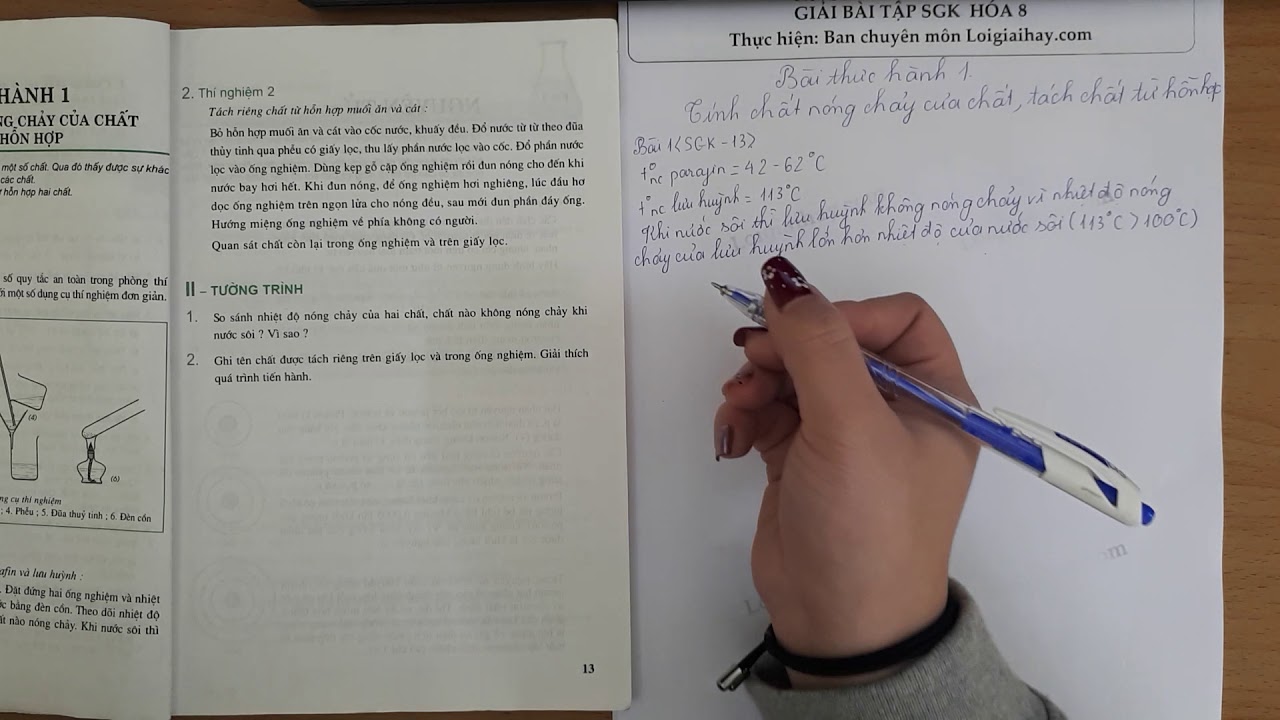 HÀNH 1
NG CHẢY CỦA CHẤT
HỖN HỢP
một số chất. Qua đó thấy được sự khác
các chất.
hỗn hợp hai chất.
số quy tắc an toàn trong phòng thí
một số dụng cụ thí nghiệm đơn giản.
(4)
(6)
ng cụ thí nghiệm
; 4. Phễu ; 5. Đũa thuỷ tinh ; 6. Đèn cồn
afin và lưu huỳnh :
. Đặt đứng hai ống nghiệm và nhiệt
c bằng đèn cồn. Theo dõi nhiệt độ
ất nào nóng chảy. Khi nước sôi thì
2. Thí nghiệm 2
Tách riêng chất từ hỗn hợp muối ăn và cát :
Bỏ hỗn hợp muối ăn và cát vào cốc nước, khuấy đều. Đổ nước từ từ theo đũa
thủy tinh qua phễu có giấy lọc, thu lấy phần nước lọc vào cốc. Đổ phần nước
lọc vào ống nghiệm. Dùng kẹp gỗ cặp ống nghiệm rồi đun nóng cho đến khi
nước bay hơi hết. Khi đun nóng, để ống nghiệm hơi nghiêng, lúc đầu hơ
dọc ống nghiệm trên ngọn lửa cho nóng đều, sau mới đun phần đáy ống.
Hướng miệng ống nghiệm về phía không có người.
Quan sát chất còn lại trong ống nghiệm và trên giấy lọc.
II – TƯỜNG TRÌNH
1. So sánh nhiệt độ nóng chảy của hai chất, chất nào không nóng chảy khi
nước sôi ? Vì sao ?
2. Ghi tên chất được tách riêng trên giấy lọc và trong ống nghiệm. Giải thích
quá trình tiến hành.
13
GIẢI BÀI TẬP SGK HÓA 8
Thực hiện: Ban chuyên môn Loigiaihay.com
Bài thực hành 1.
Tính chất nóng chảy của chất, tách chất từ hỗn hợp
Bài 1 <SGK - 13>
t°nc parafin = 42 - 62°C
t°nc lưu huỳnh = 113°C
Khi nước sôi thì lưu huỳnh không nóng chảy vì nhiệt độ nóng
chảy của lưu huỳnh lớn hơn nhiệt độ của nước sôi (113°C > 100°C)
om